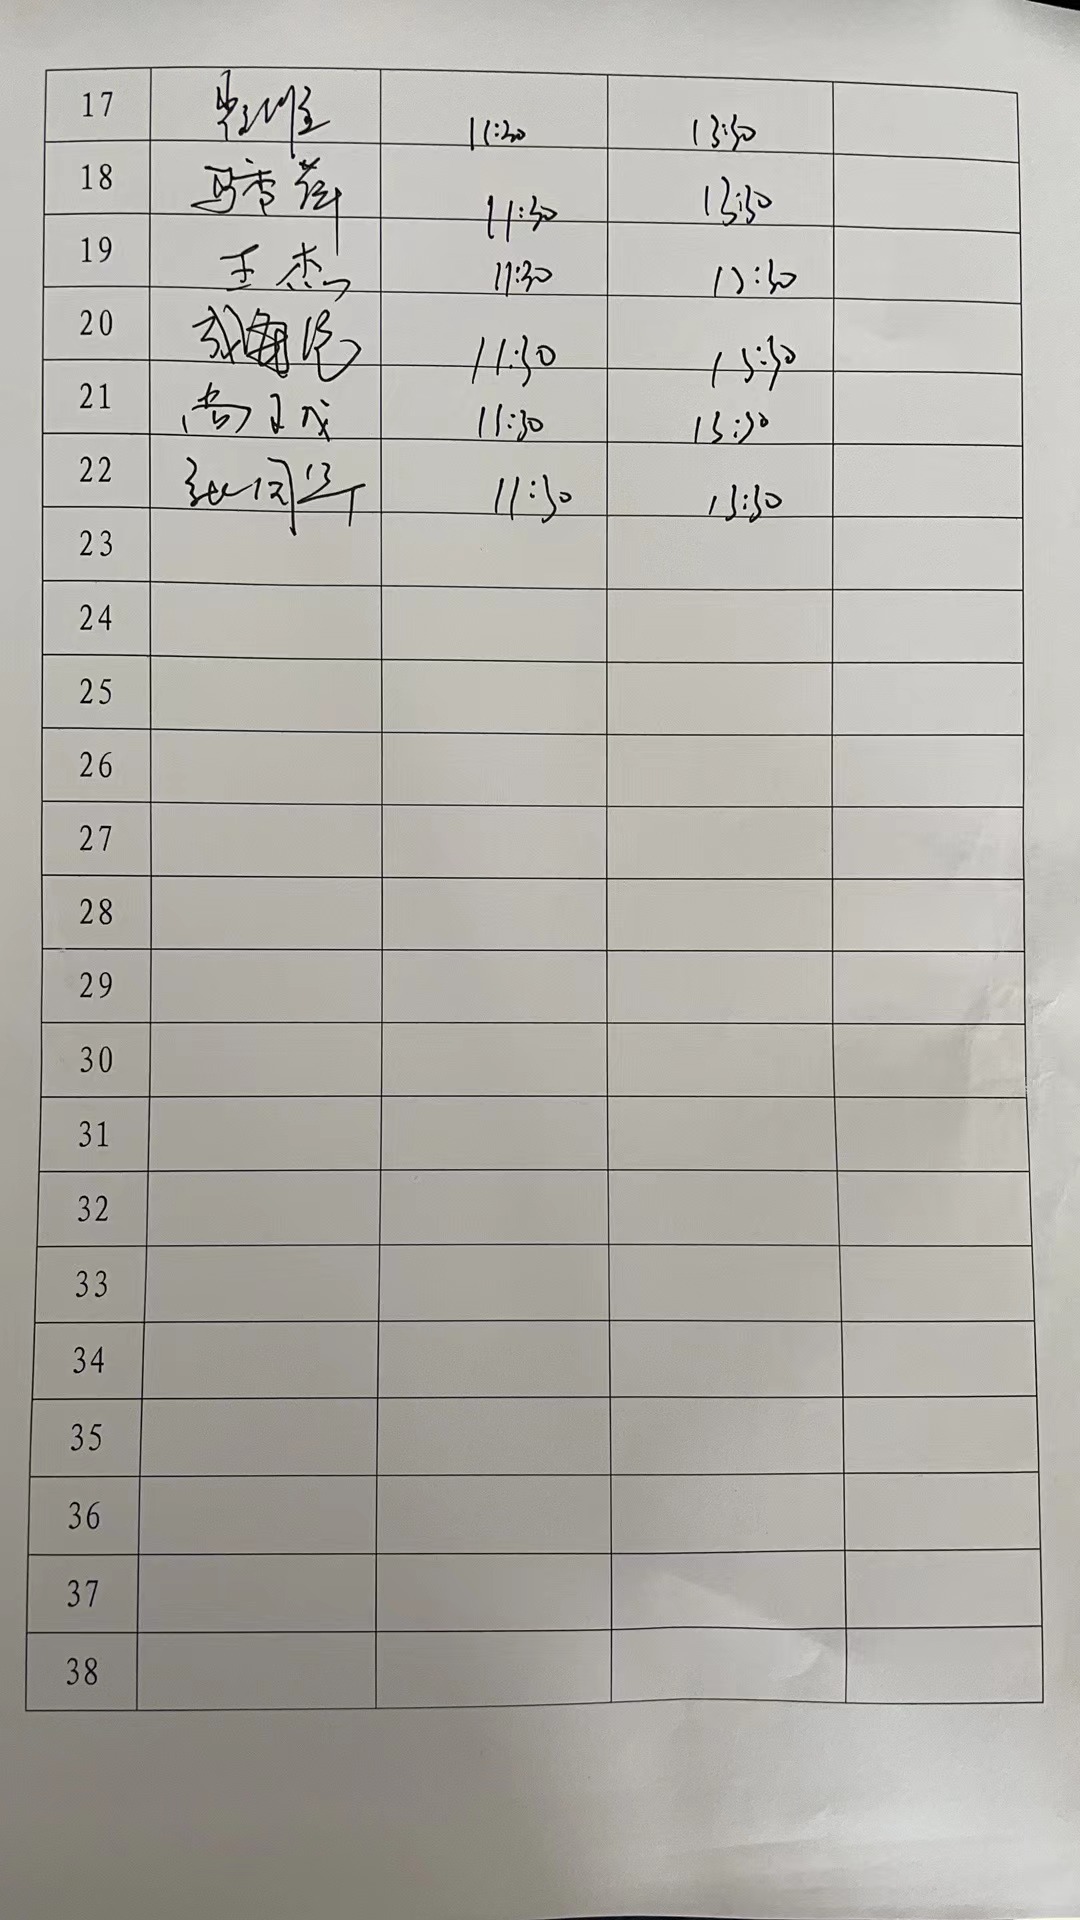 17 11:30 13:30
18 马香荷 11:30 13:30
19 王杰 11:30 13:30
20 11:30 13:30
21 11:30 13:30
22 11:30 13:30
23
24
25
26
27
28
29
30
31
32
33
34
35
36
37
38